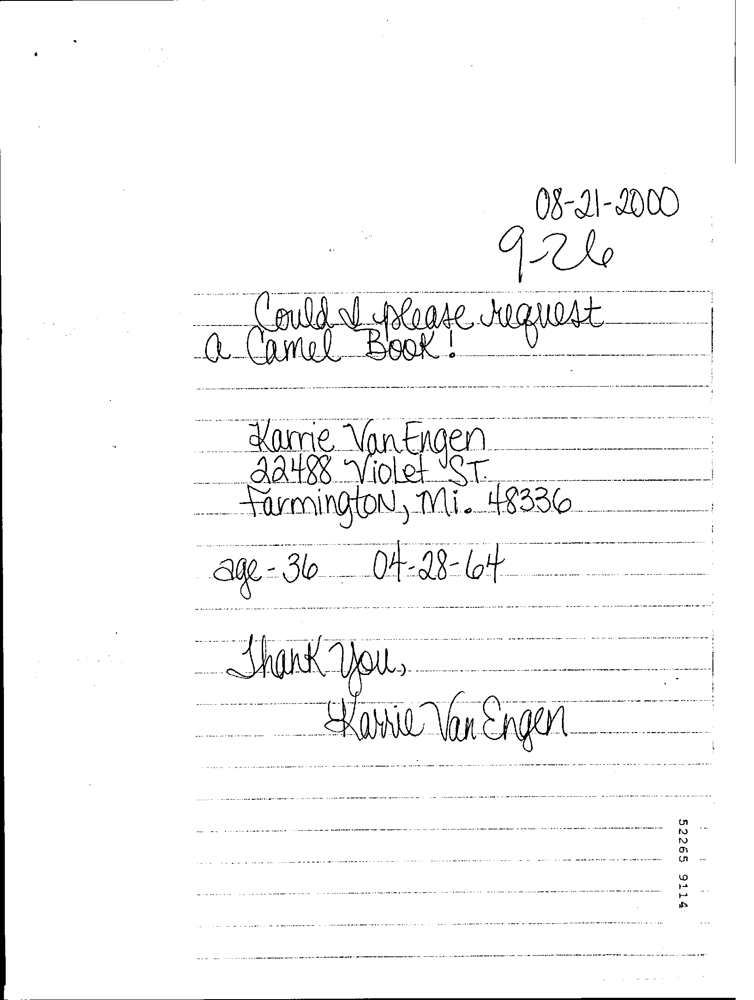 08-21-2000
9-26
Could I please request
a Camel Book!
Karrie Van Engen
22488 Violet ST.
Farmington, Mi. 48336
age-36 04-28-64
Thank You,
Karrie Van Engen
52265 9114